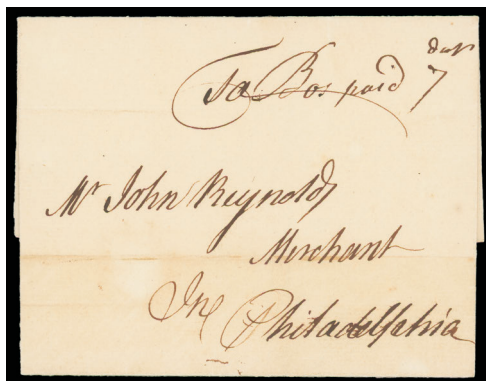 To Bos paid 7
Mr John Reynolds
Merchant
In
Philadelphia